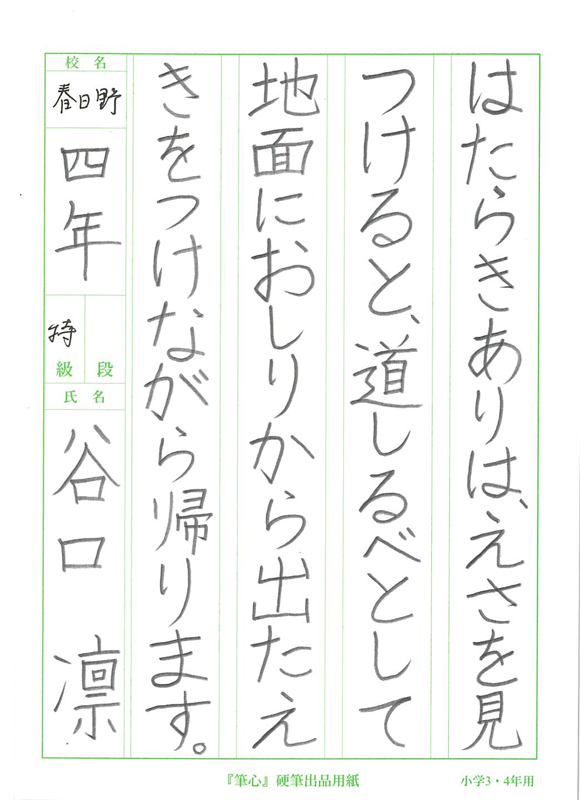 はたらきありは、えさを見
つけると、道しるべとして
地面におしりから出たえ
きをつけながら帰ります。
校名
春日野
四年
特
級 段
氏名
谷口 凛
『筆心』硬筆出品用紙
小学3・4年用